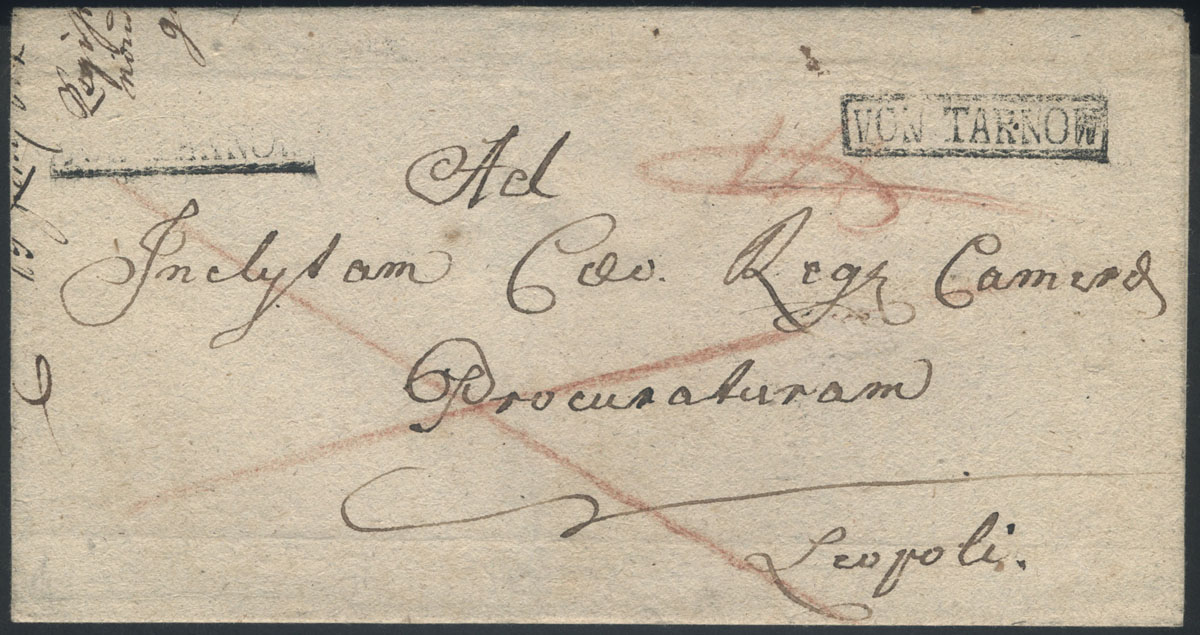 VON TARNOW
Ad
Inclytam Cæo. Regz Camerd
Procuraturam
Leopoli.